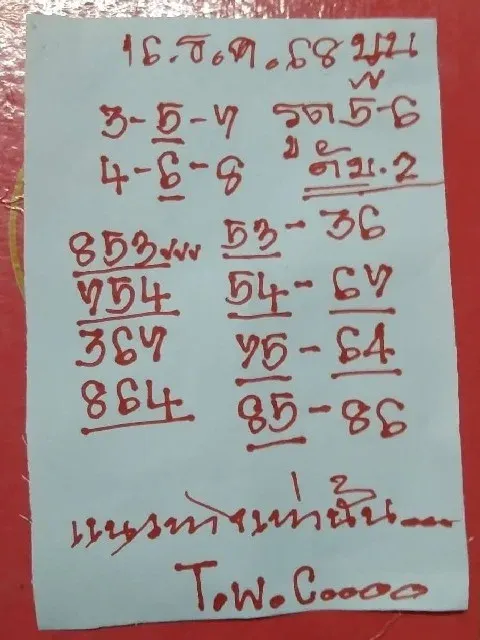 16.ธ.ค.68 บน
3-5-7 รูด 5-6
4-6-8 ดับ.2
853 53-36
754 54-67
367 75-64
864 85-86
แนวทางเท่านั้น....
T.W.C....